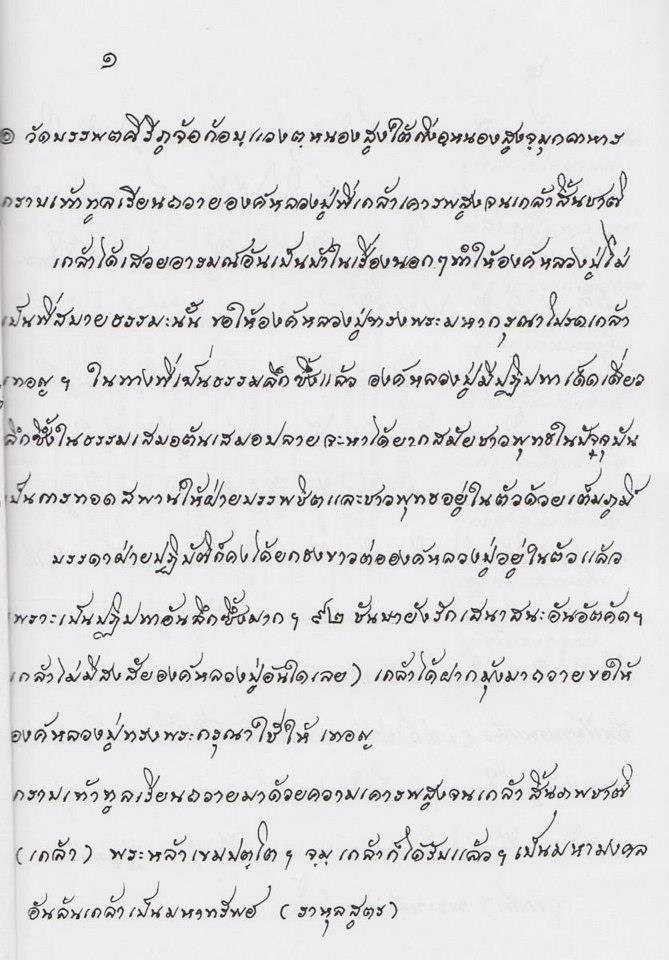 ๑
๑ วัดบรรพตคีรีภูจ้อก้อบ้านแวง ต.หนองสูงใต้ กิ่งอ.หนองสูง จ.มุกดาหาร
กราบเท้าทูลเรียนถวายองค์หลวงปู่ที่เกล้าเคารพสูงจนเกล้าสิ้นชาติ
เกล้าได้เสวยอารมณ์อันเป็นบ้าในเรื่องนอกๆทำให้องค์หลวงปู่ไม่
เป็นที่สบายธรรมะนั้น ขอให้องค์หลวงปู่ทรงพระมหากรุณาโปรดเกล้า
เทอญฯ ในทางที่เป็นธรรมลึกซึ้งแล้ว องค์หลวงปู่มีปฏิปทาเด็ดเดี่ยว
ลึกซึ้งในธรรมเสมอต้นเสมอปลายจะหาได้ยากสมัยชาวพุทธในปัจจุบัน
เป็นการทอดสพานให้ฝ่ายบรรพชิตและชาวพุทธอยู่ในตัวด้วยเต็มภูมิ
บรรดาฝ่ายปฏิบัติก็คงได้ยกธงขาวต่อองค์หลวงปู่อยู่ในตัวแล้ว
เพราะเป็นปฏิปทาอันลึกซึ้งมากฯ ๙๒ ชันษายังรักเสนาสนะอันอัตคัดฯ
เกล้าไม่มีสงสัยองค์หลวงปู่อันใดเลย) เกล้าได้ฝากมุ้งมาถวายขอให้
องค์หลวงปู่ทรงพระกรุณาใช้ให้ เทอญ
กราบเท้าทูลเรียนถวายมาด้วยความเคารพสูงจนเกล้าสิ้นภพชาติ
(เกล้า) พระหล้าเขมปตฺโตฯ จ.ม. เกล้าก็ได้รับแล้วฯเป็นมหามงคล
อันล้นเกล้าเป็นมหาทรัพย์ (ราหุลสูตร)